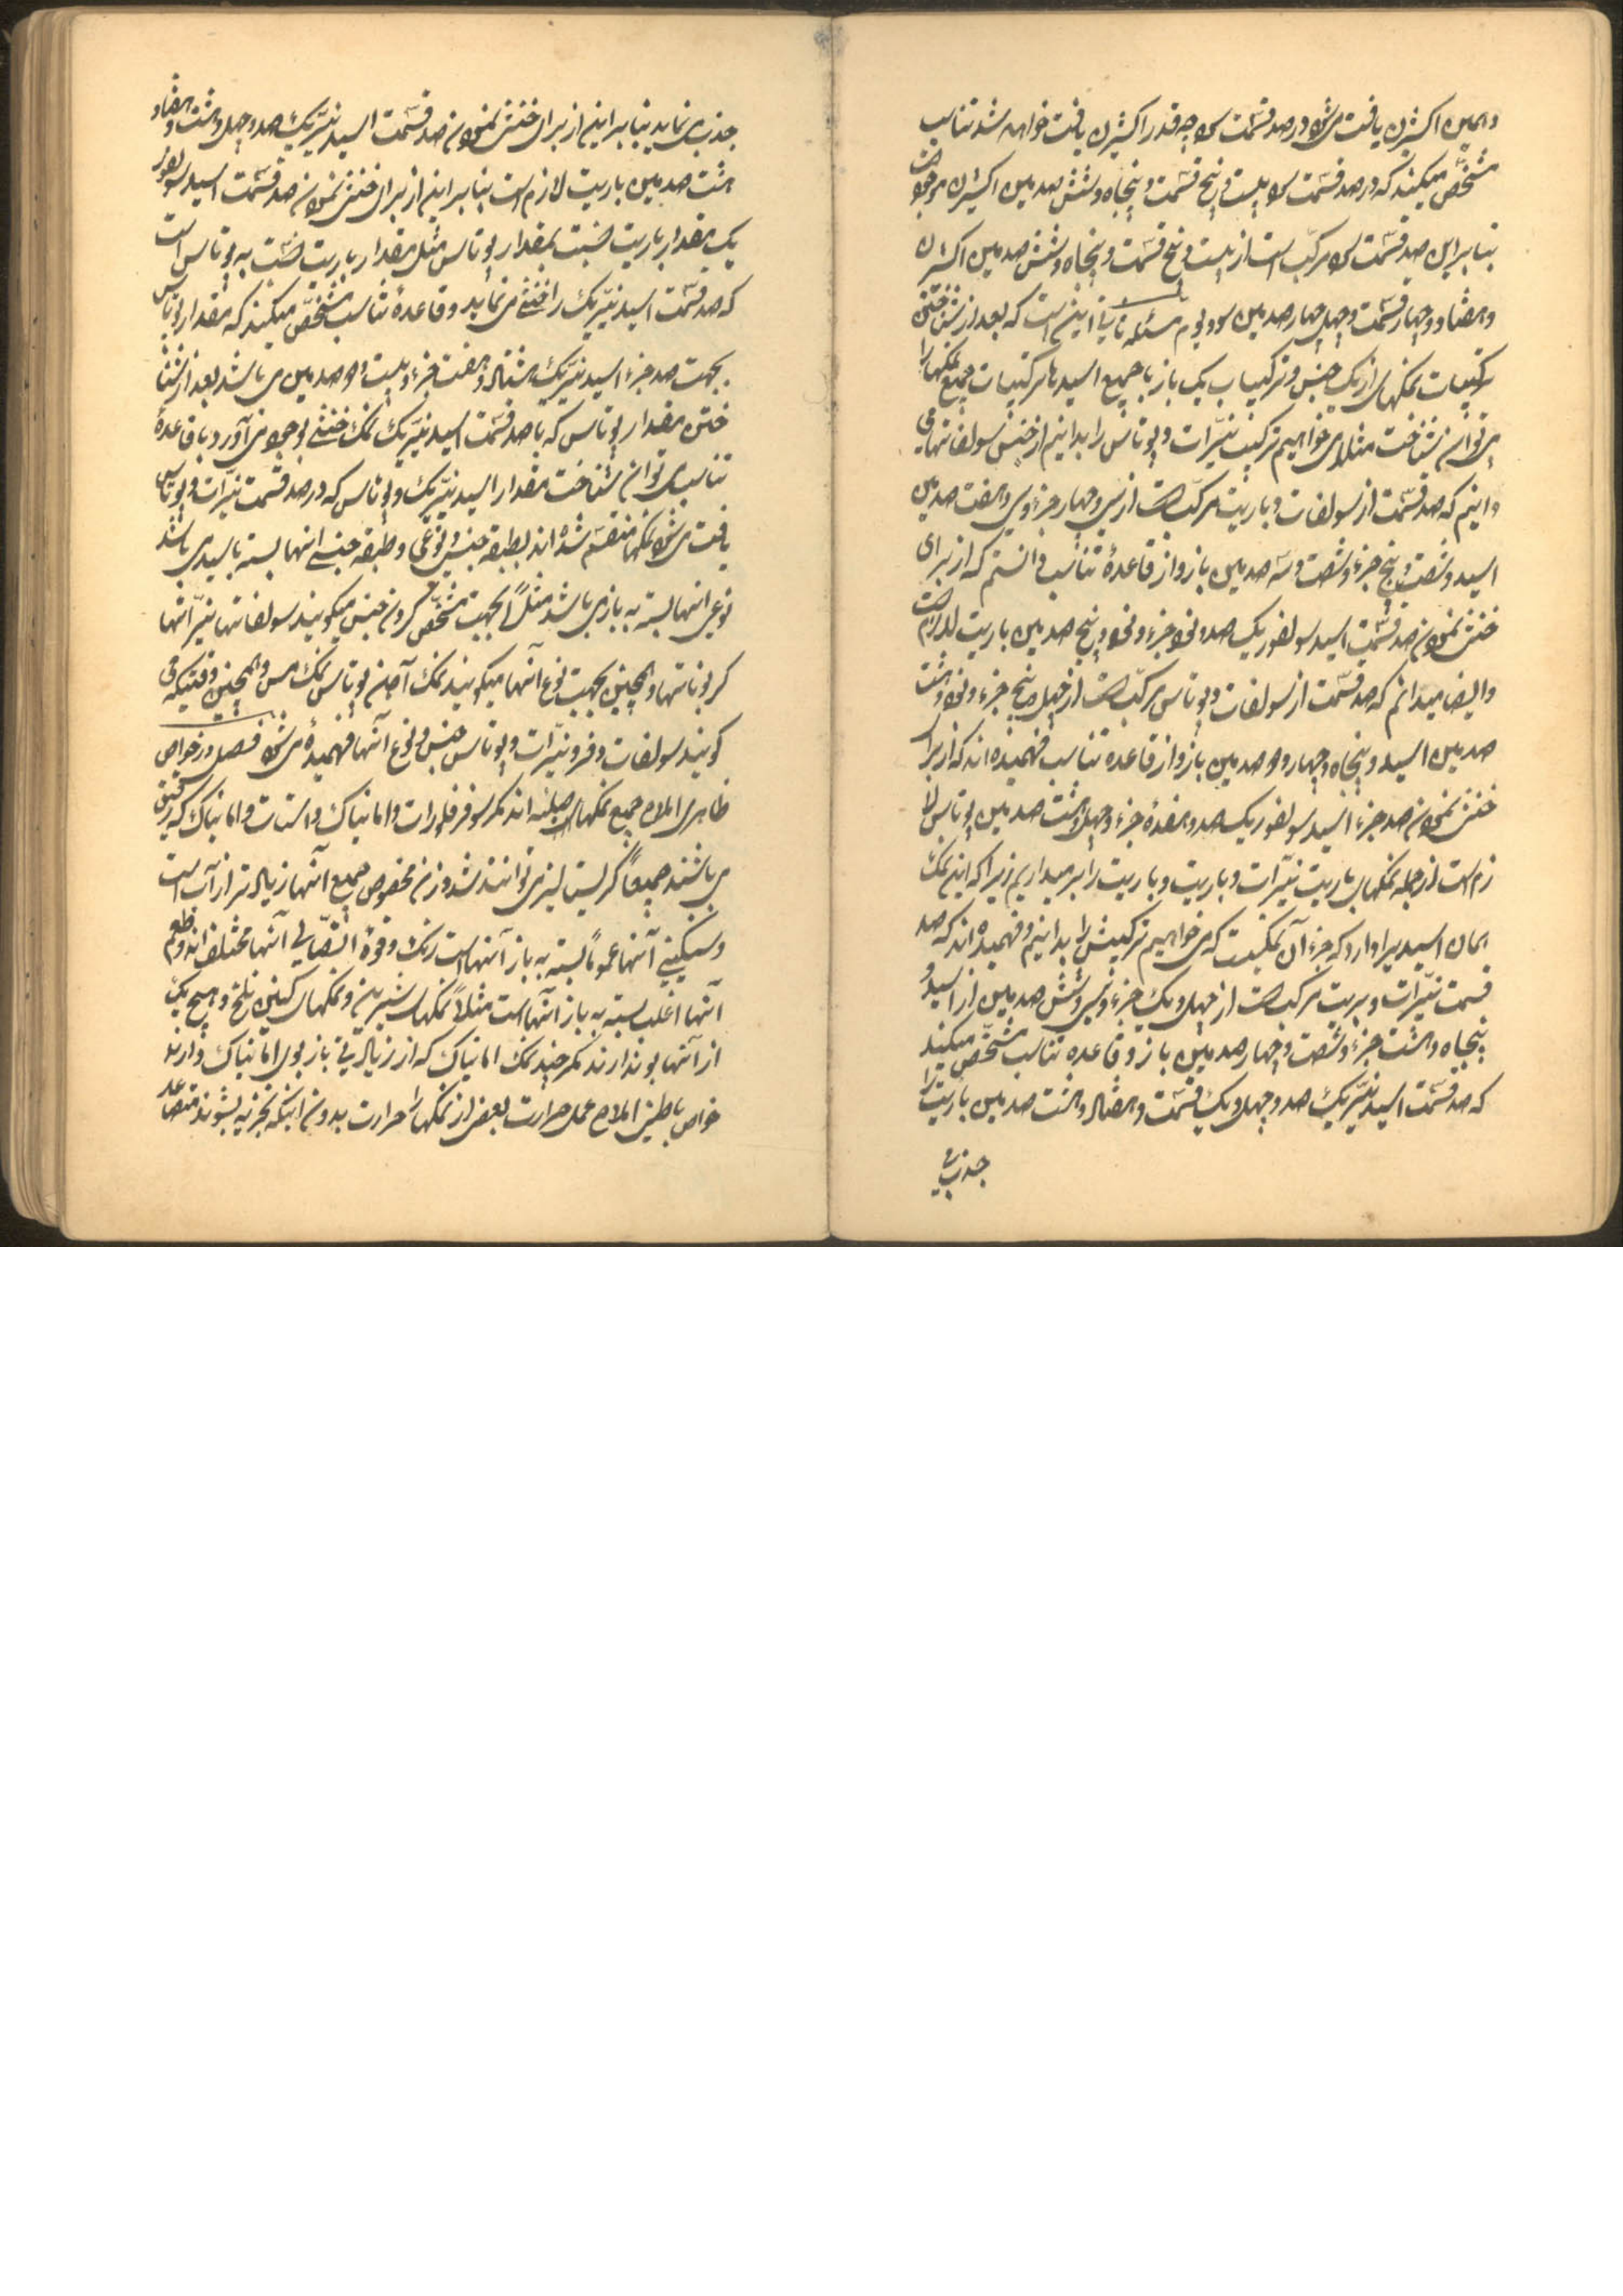 و همین اکسژن یافت می‌شود در صد قسمت سود چه قدر اکسیژن یافت خواهد شد تناسب
مشخص میکند که در صد قسمت سود بیست و پنج قسمت و پنجاه و شش صدمین اکسیژن موجود است
بنا براین صد قسمت سود مرکب است از بیست و پنج قسمت و پنجاه و شش صدمین اکسژن
و هفتاد و چهار قسمت و چهل چهار صدمین سودیوم مسئله ثانی اینست که بعد از شناختن
ترکیبات نمکهای از یک جنس و ترکیبات یک باز با جمیع اسیدها ترکیبات جمیع نمکها را
می‌توان شناخت مثلا می‌خواهیم ترکیب نیترات و پوتاس را بدانیم از جنس سولفاتها می
دانیم که صد قسمت از سولفات و باریت مرکب است از سی و چهار جزء و سی و هفت صدمین
اسید و شصت و پنج جزء و شصت و سه صدمین باز و از قاعدۀ تناسب دانستم که از برای
خنثی نمودن صد قسمت اسید سولفوریک صد و نود جزء و نود و پنج صدمین باریت لازم است
و ایضا میدانم که صد قسمت از سولفات و پوتاس مرکب است از چهل و پنج جزء و نود و هشت
صدمین اسید و پنجاه و چهار و دو صدمین باز و از قاعده تناسب فهمیده‌اند که از برای
خنثی نمودن صد جزء اسید سولفوریک صد و هفده جزء و چهل و هشت صدمین پوتاس لا
زم است از جمله نمکهای باریت نیترات و باریت و باریت را بر میداریم زیرا که این نمک
همان اسید را دارد که جزء آن نمکیست که می‌خواهیم ترکیبش را بدانیم و فهمیده‌اند که صد
قسمت نیترات و بریت مرکب است از چهل و یک جزء و سی و شش صدمین از اسید و
پنجاه و هشت جزء و شصت و چهار صدمین باز و قاعده تناسب مشخص میکند
که صد قسمت اسید نیتریک صد و چهل و یک قسمت و هفتاد و هشت صدمین باریت را
جذب می
جذب می‌نماید بنا براین از برای خنثی نمودن صد قسمت اسید نیتریک صد و چهل و هشت و هفتاد و
هشت صدمین باریت لازم است بنا براین از برای خنثی نمودن صد قسمت اسید سولفور
یک مقدار باریت نسبت بمقدار پوتاس مثل مقدار باریت نسبت به پوتاس است
که صد قسمت اسید نیتریک را خنثی می‌نماید و قاعدۀ تناسب مشخص میکند که مقدار پوتاس
بجهت صد جزء اسید نیتریک هشتاد و هفت جزء و بیست و دو صدمین می‌باشد بعد از شنا
ختن مقدار پوتاس که با صد قسمت اسید نیتریک نمک خنثی بوجود می‌آورد با قاعدۀ
تناسب می‌توان شناخت مقدار اسید نیتریک و پوتاس که در صد قسمت نیترات و پوتاس
یافت می‌شود نمکها منقسم شده‌اند بطبقه جنسی و نوعی و طبقه جنسی انها بسته باسید می‌باشد
نوعی انها بسته به باز می‌باشد مثلاً بجهت مشخص کردن جنس میگویند سولفاتها نیتراتها
کربوناتها و همچنین بجهت نوع آنها میگویند نمک آهن پوتاس نمک مس و همچنین وقتیکه می
گویند سولفات و فر و نیترات و پوتاس جنس و نوع آنها فهمیده می‌شود فصل در خواص
ظاهری املاح جمیع نمکهای صلبند اند مگر سو فر فلورات و امانیاک و استات و امانیاک که رقیق
می‌باشند جمیعاً کریستلیز می‌توانند شد وزن مخصوص جمیع آنها زیاد تر از آب است
و سنگینی آنها عموماً بسته به باز آنها است رنگ و قوۀ اتصالی آنها مختلف‌اند و طعم
آنها اغلب بسته به باز آنها است مثلاً نمکهای شیرین و نمکهای تلخ و هیچ یک
از آنها بو ندارند مگر چند نمک امانیاک که از زیادتی باز بوی امانیاک دارند
خواص باطنی املاح عمل حرارت بعض از نمکها را حرارت بدون اینکه تجزیه بشوند متصاعد